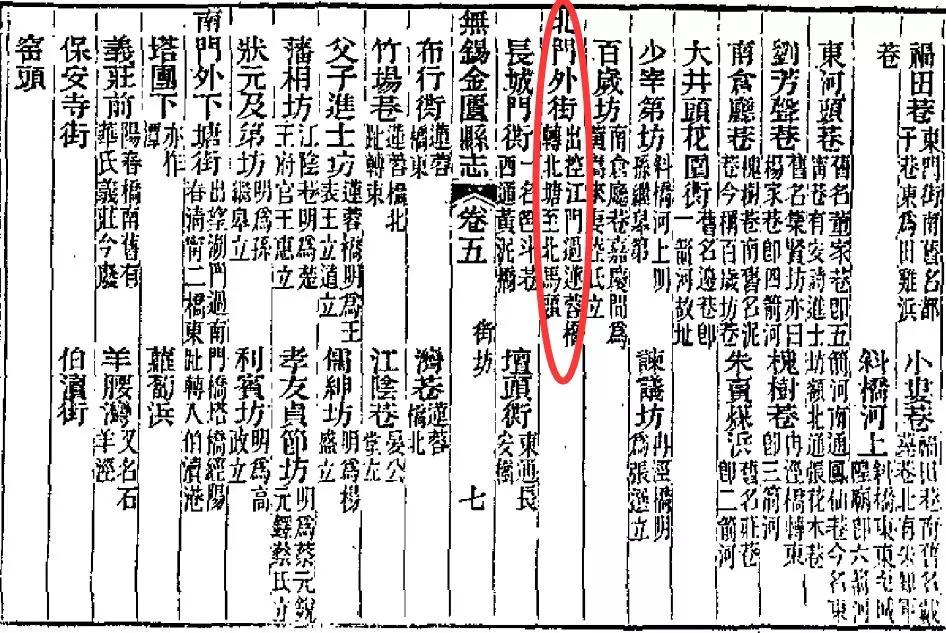 福田巷 東門內舊名都子巷東爲田雞浜 小婁巷 福田巷南舊名戴
巷 斜橋河上 斜橋東東至城隍廟卽六箭河
東河頭巷 舊名董家巷卽五箭河南通鳳仙巷今名東甯巷有安詩進士坊額北通張花木巷
劉芳聲巷 舊名集賢坊亦曰楊家巷卽四箭河 槐樹巷 冉涇橋轉東卽三箭河
南倉廳巷 槐樹巷南舊名泥巷今稱百歲坊巷 朱賣糕浜 舊名莊巷卽二箭河
大井頭花園街 舊名邊巷卽一箭河故址
少宰第坊 斜橋河上明孫繼皋第 諫議坊 冉涇橋明爲張選立
百歲坊 南倉廳巷嘉慶間爲妻陸氏立
北門外街 出控江門過蓮蓉橋轉北塘至北馬頭
長城門街 一名笆斗巷西通黃泥橋 壇頭街 東通長安橋
無錫金匱縣志 卷五 街坊 七
布行衖 蓮蓉橋東 濟巷 蓮蓉橋北
竹場巷 蓮蓉橋北趾轉東 江陰巷 晏公堂左
父子進士坊 蓮蓉橋明爲王表王立道立 儒紳坊 明爲楊盛立
藩相坊 江陰巷明爲楚王府官王惠立 孝友貞節坊 明爲蔡元銳元鐸蔡氏立
狀元及第坊 明爲孫繼皋立 利賓坊 明爲高政立
南門外下塘街 出望湖門過南門橋塔橋經陽春淸甯二橋東趾轉入伯瀆港
塔團下 亦作潭 蘿蔔浜
義莊前 陽春橋南舊有華氏義莊今廢 羊腰灣 又名石羊涇
保安寺街 伯瀆街
窰頭